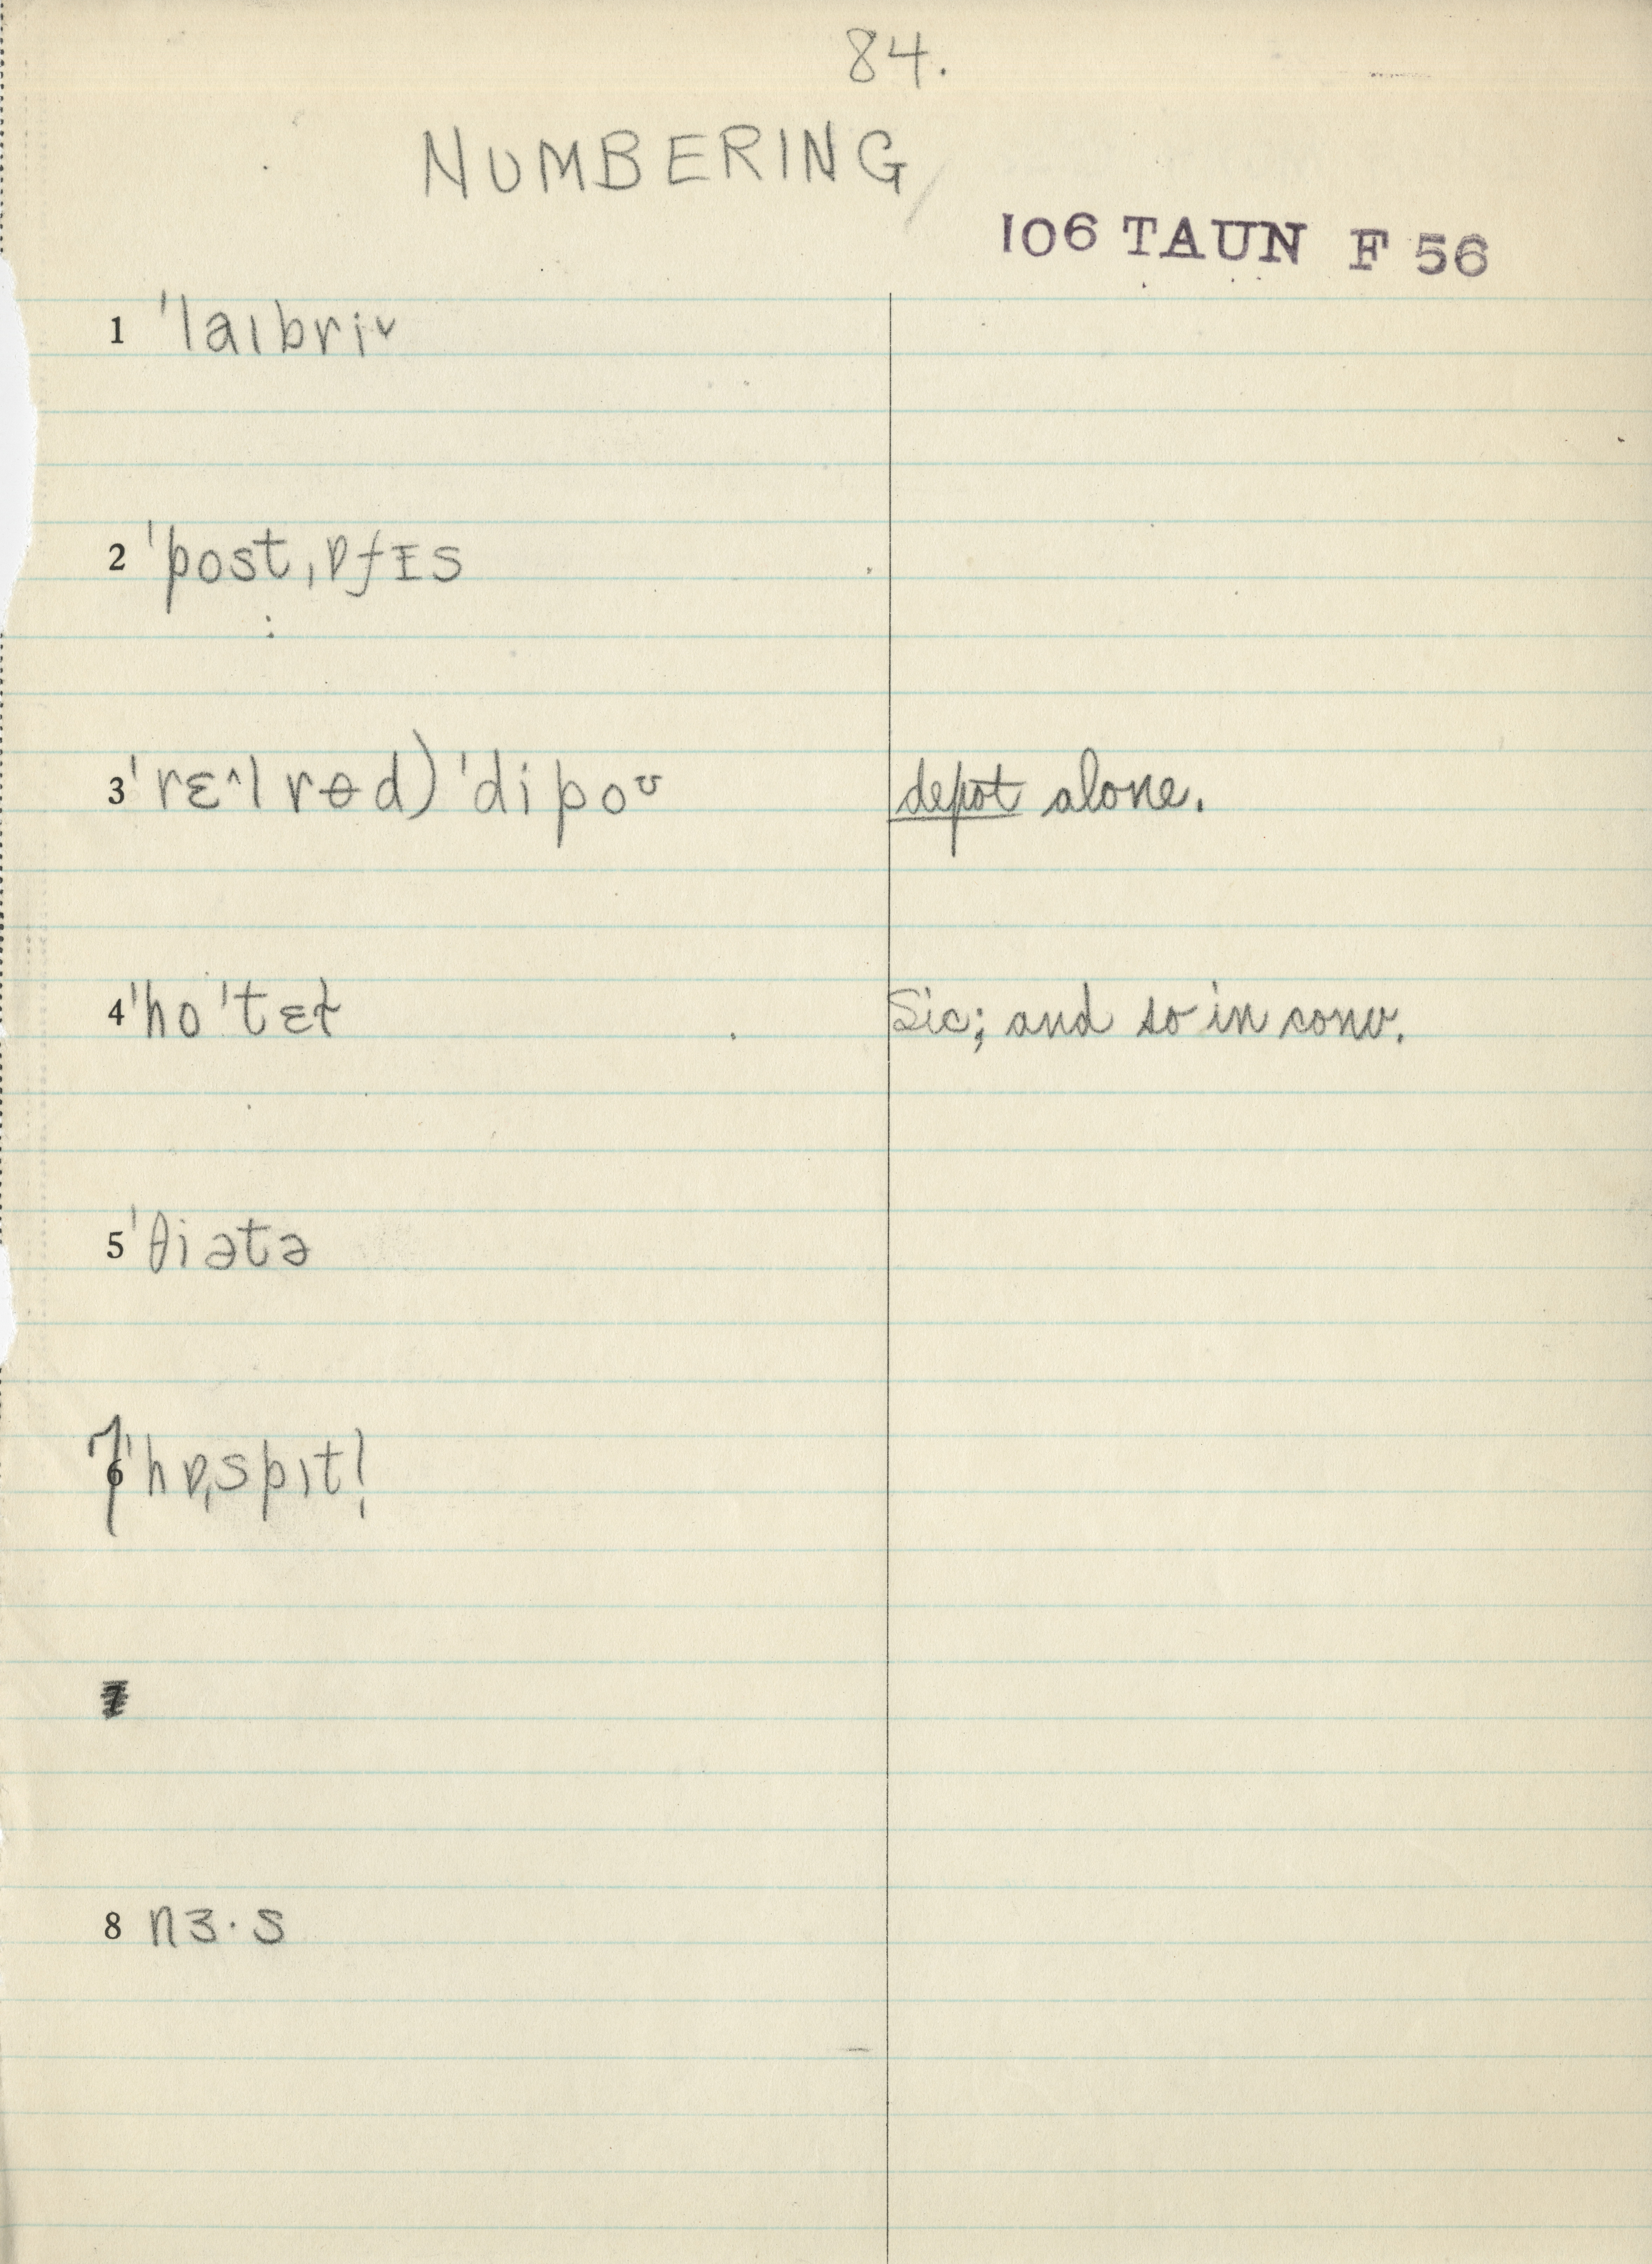 84.
NUMBERING
106 TAUN F 56
1 ˈlaɪbri˅
2 ˈpostˌɒfɪs
3 ˈrɛ^lrɵd) ˈdipoᶷ depot alone.
4 ˈhoˈtɛɫ Sic; and so in conv.
5 ˈθiətə
7 ˈhɒˌspɪtl̩
8 nɜ·s